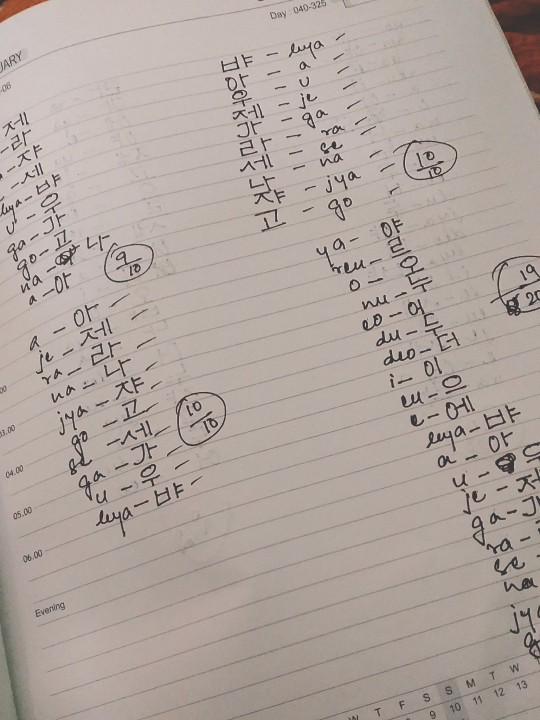 UARY
Day 040-325
-06
제
-라
- 쟈
- 세
bya - 뱌
u - 우
ga - 가
go - 고
na - 나
a - 아
9/10
a - 아
je - 제
ra - 라
na - 나
jya - 쟈
go - 고
se - 세
ga - 가
u - 우
bya - 뱌
10/10
03.00
04.00
05.00
06.00
Evening
뱌 - bya
아 - a
우 - u
제 - je
가 - ga
라 - ra
세 - se
나 - na
쟈 - jya
고 - go
10/10
ya - 야
reu - 르
o - 오
nu - 누
eo - 어
du - 두
deo - 더
i - 이
eu - 으
e - 에
bya - 뱌
a - 아
u - 우
je - 제
ga - 가
ra -
se -
na
19/20
T F S S M T W
8 9 10 11 12 13